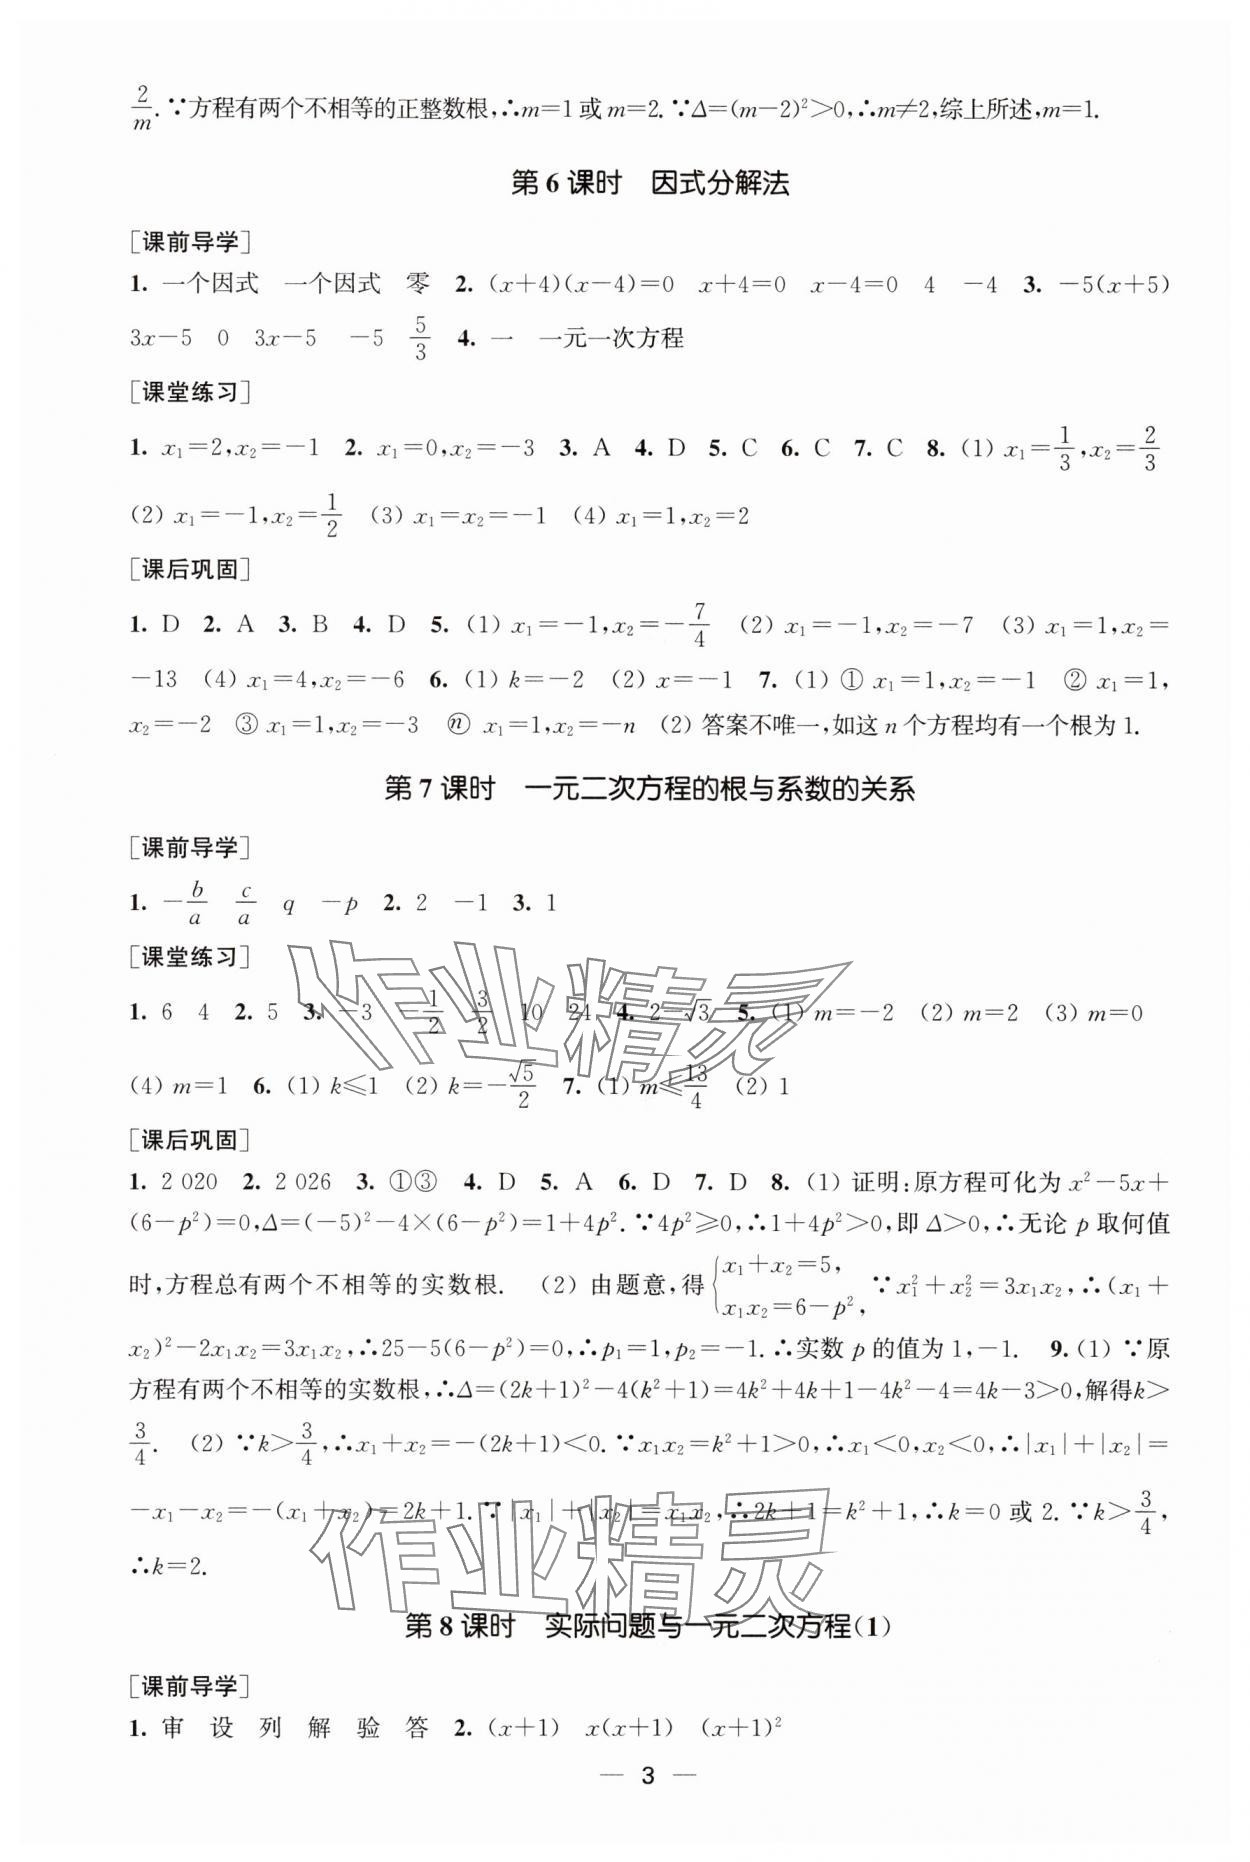 2/m.∵方程有两个不相等的正整数根,∴m=1或m=2.∵Δ=(m-2)²>0,∴m≠2,综上所述,m=1.
第6课时　因式分解法
[课前导学]
1. 一个因式　一个因式　零　2. (x+4)(x-4)=0　x+4=0　x-4=0　4　-4　3. -5(x+5)
3x-5　0　3x-5　-5　5/3　4. 一　一元一次方程
[课堂练习]
1. x₁=2,x₂=-1　2. x₁=0,x₂=-3　3. A　4. D　5. C　6. C　7. C　8. (1) x₁=1/3,x₂=2/3
(2) x₁=-1,x₂=1/2　(3) x₁=x₂=-1　(4) x₁=1,x₂=2
[课后巩固]
1. D　2. A　3. B　4. D　5. (1) x₁=-1,x₂=-7/4　(2) x₁=-1,x₂=-7　(3) x₁=1,x₂=
-13　(4) x₁=4,x₂=-6　6. (1) k=-2　(2) x=-1　7. (1) ① x₁=1,x₂=-1　② x₁=1,
x₂=-2　③ x₁=1,x₂=-3　ⓝ x₁=1,x₂=-n　(2) 答案不唯一,如这n个方程均有一个根为1.
第7课时　一元二次方程的根与系数的关系
[课前导学]
1. -b/a　c/a　q　-p　2. 2　-1　3. 1
[课堂练习]
1. 6　4　2. 5　3. -3　-1/2　3/2　10　24　4. 2-√3　5. (1) m=-2　(2) m=2　(3) m=0
(4) m=1　6. (1) k≤1　(2) k=-√5/2　7. (1) m≤13/4　(2) 1
[课后巩固]
1. 2 020　2. 2 026　3. ①③　4. D　5. A　6. D　7. D　8. (1) 证明:原方程可化为x²-5x+
(6-p²)=0,Δ=(-5)²-4×(6-p²)=1+4p².∵4p²≥0,∴1+4p²>0,即Δ>0,∴无论p取何值
时,方程总有两个不相等的实数根.　(2) 由题意,得{x₁+x₂=5, x₁x₂=6-p², ∵x₁²+x₂²=3x₁x₂,∴(x₁+
x₂)²-2x₁x₂=3x₁x₂,∴25-5(6-p²)=0,∴p₁=1,p₂=-1.∴实数p的值为1,-1.　9. (1) ∵原
方程有两个不相等的实数根,∴Δ=(2k+1)²-4(k²+1)=4k²+4k+1-4k²-4=4k-3>0,解得k>
3/4.　(2) ∵k>3/4,∴x₁+x₂=-(2k+1)<0.∵x₁x₂=k²+1>0,∴x₁<0,x₂<0,∴|x₁|+|x₂|=
-x₁-x₂=-(x₁+x₂)=2k+1.∵|x₁|+|x₂|=x₁x₂,∴2k+1=k²+1,∴k=0或2.∵k>3/4,
∴k=2.
第8课时　实际问题与一元二次方程(1)
[课前导学]
1. 审　设　列　解　验　答　2. (x+1)　x(x+1)　(x+1)²
— 3 —
作业精灵
作业精灵